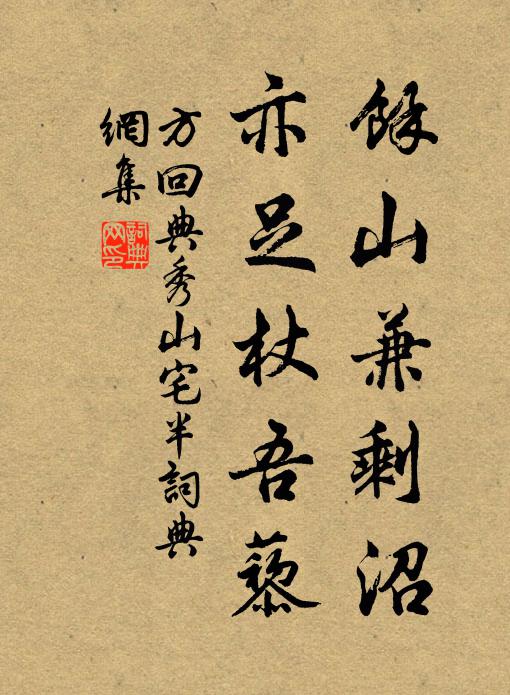 餘山兼剩沼
亦足杖吾藜
方回典秀山宅半詞典
網集
詞典網印